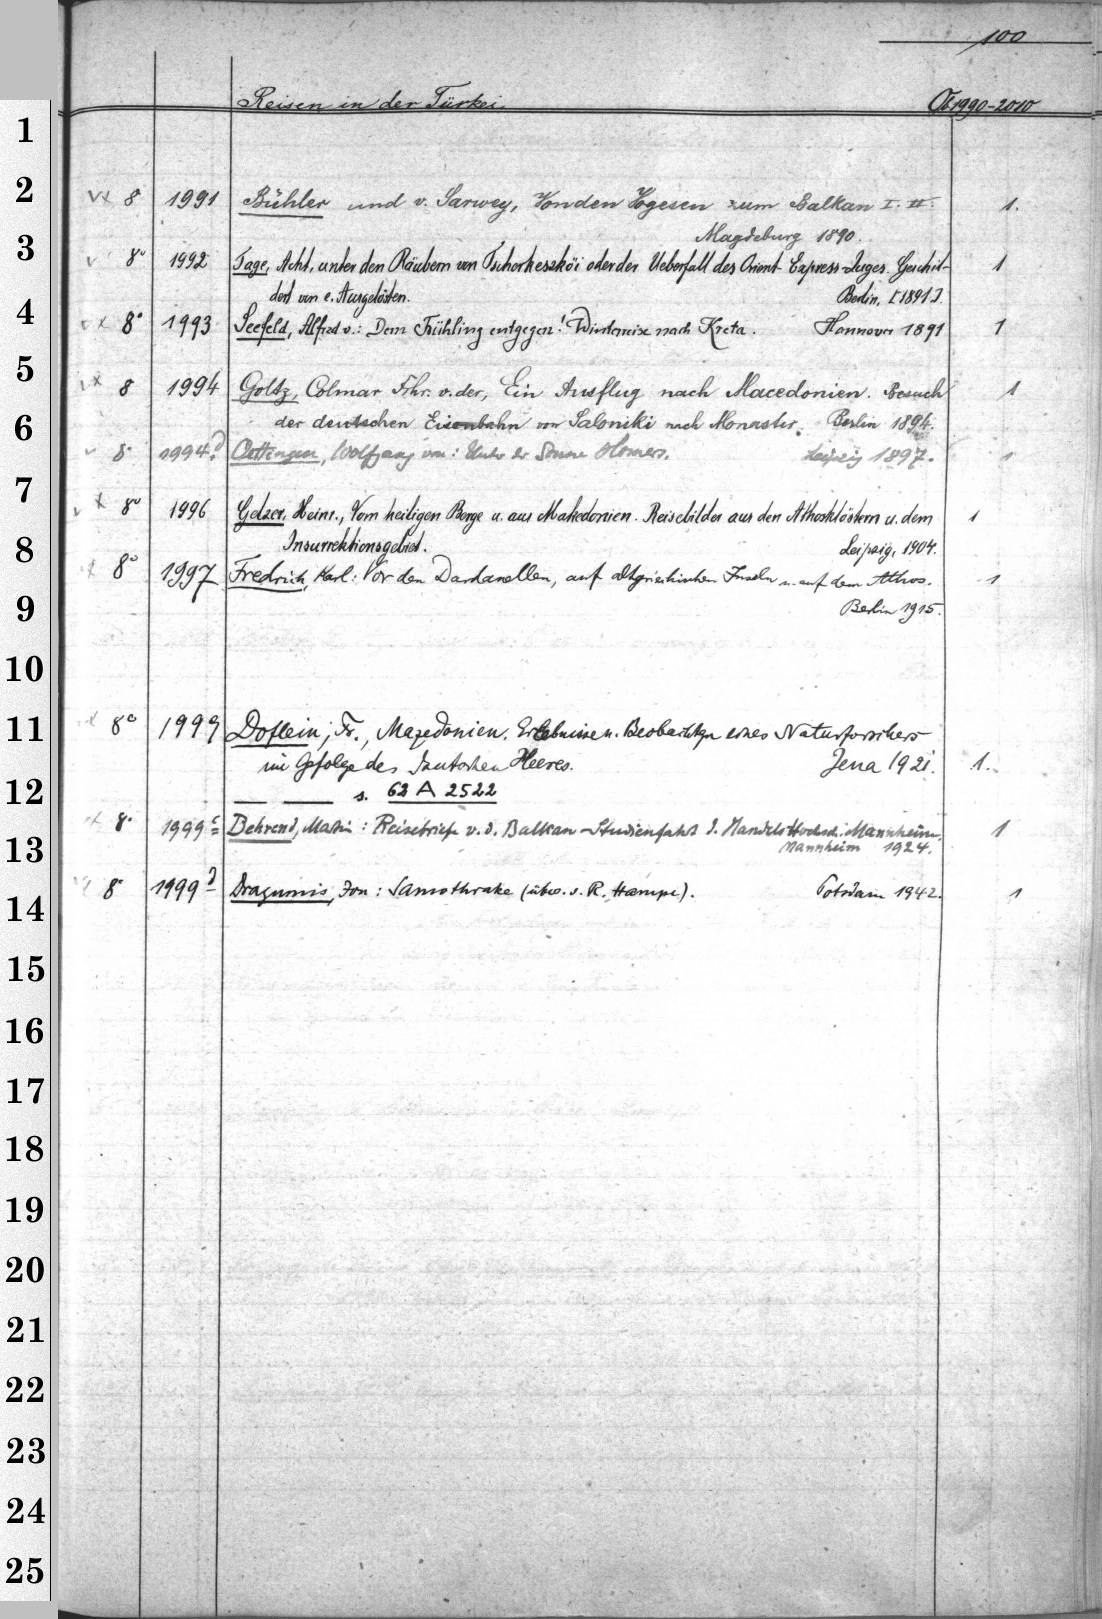 100
Reisen in der Türkei. Ob 1990-2010
1
2 8 1991 Bühler und v. Sarwey, Von den Vogesen zum Balkan I. II. 1.
Magdeburg 1890.
3 8° 1992 Tage, Acht, unter den Räubern von Tscherkeszköi oder der Ueberfall des Orient-Express-Zuges. Geschil- 1
dert von e. Ausgelösten. Berlin, [1891].
4 8° 1993 Seefeld, Alfred v.: Dem Frühling entgegen! Winterreise nach Kreta. Hannover 1891 1
5 8 1994 Goltz, Colmar Frhr. v. der, Ein Ausflug nach Macedonien. Besuch 1
6 der deutschen Eisenbahn von Saloniki nach Monastir. Berlin 1894.
8° 1994 Oettingen, Wolfgang von: Unter der Sonne Homers. Leipzig 1897. 1
7 8° 1996 Gelzer, Heinr., Vom heiligen Berge u. aus Makedonien. Reisebilder aus den Athosklöstern u. dem 1
8 Insurrektionsgebiet. Leipzig, 1904.
8° 1997 Fredrich, Karl: Vor den Dardanellen, auf altgriechischen Inseln u. auf dem Athos. 1
9 Berlin 1915.
10
11 8° 1999 Doflein, Fr., Mazedonien. Erlebnisse u. Beobachtgn eines Naturforschers
im Gefolge des deutschen Heeres. Jena 1921. 1.
12 — — s. 62 A 2522
8° 1999c Behrend, Martin: Reisebriefe v. d. Balkan-Studienfahrt d. Handels-Hochsch. Mannheim. 1
13 Mannheim 1924.
14 8° 1999d Dragumis, Jon: Samothrake (übers. v. R. Hampe). Potsdam 1942. 1
15
16
17
18
19
20
21
22
23
24
25